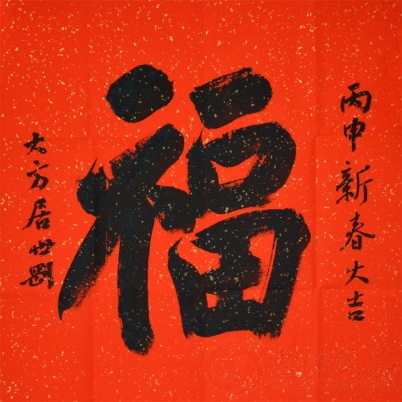 丙申新春大吉
福
大方居世刚